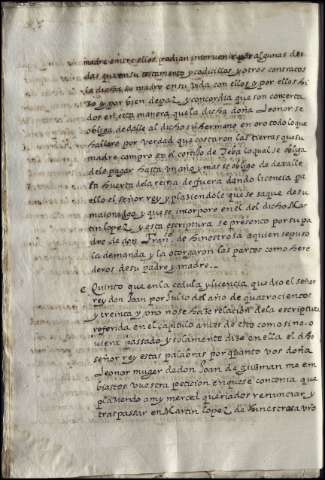 madre entre ellos podian intervenir por algunas deu
das que en su testamento y codicillos y otros contratos
la dicha su madre en su vida con ellos y por ellos hi
zo y por bien de paz y concordia que son concerta
dos en esta manera que la dicha doña Leonor se
obliga de dalle al dicho su hermano en oro todo lo que
hallare por verdad que costaron las tierras que su
madre compro en el cortijo de Teba lo qual se obliga
de le pagar hasta mayo, y mas se obligo de daralle
la huerta de la reina de fuera dando licencia pa
ello el señor rey y plaziendole que se saque de su
maioradgo y que se incorpore en el del dicho Mar
tin lopez y esta escriptura se presento por su pa
dre de don Fran. de hinestrosa a quien se puso
la demanda y la otorgaron las partes como here
deros de su padre y madre.
Quinto que en la cedula y licencia que dio el señor
rey don Joan por Julio del año de quatrocientos
y treinta y uno no se haze relacion de la escriptura
referida en el capitulo antes de esto como si no o
viera passado y solamente dize en ella el dho
señor rey estas palabras por quanto vos doña
Leonor muger de don Joan de guzman me em
biastes vuestra peticion en que se contenia que
plaziendo a my merced queriades renunciar y
traspassar en Martin Lopez de hinestrosa vro